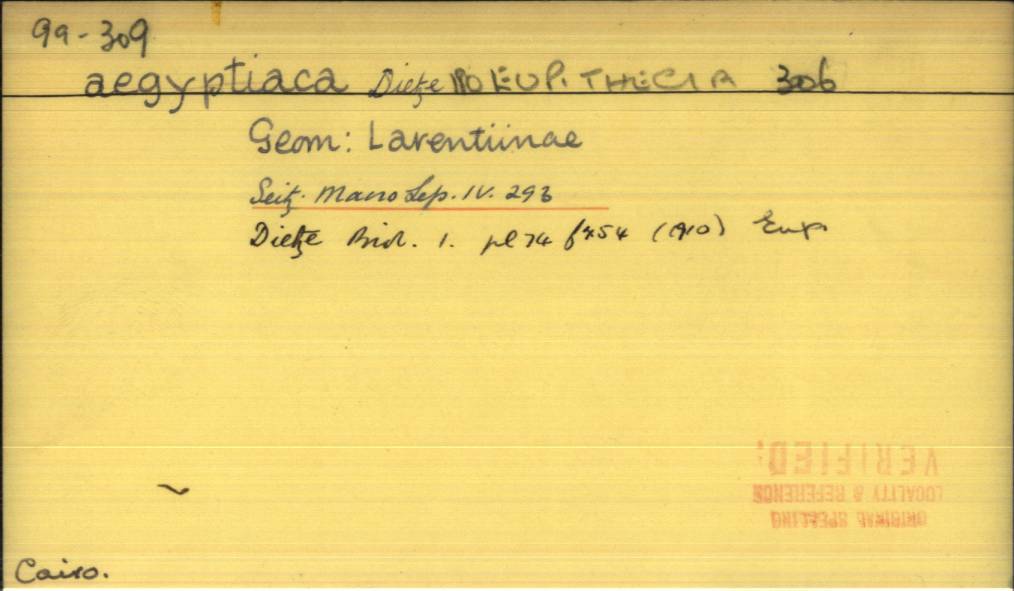 99-309
aegyptiaca Dietze EUPITHECIA 306
Geom: Larentiinae
Seitz. MacroLep. IV. 293
Dietze Biol. 1. pl 74 f 454 (1910) Eup.
VERIFIED:
LOCALITY & REFERENCE
ORIGINAL SPELLING
Cairo.